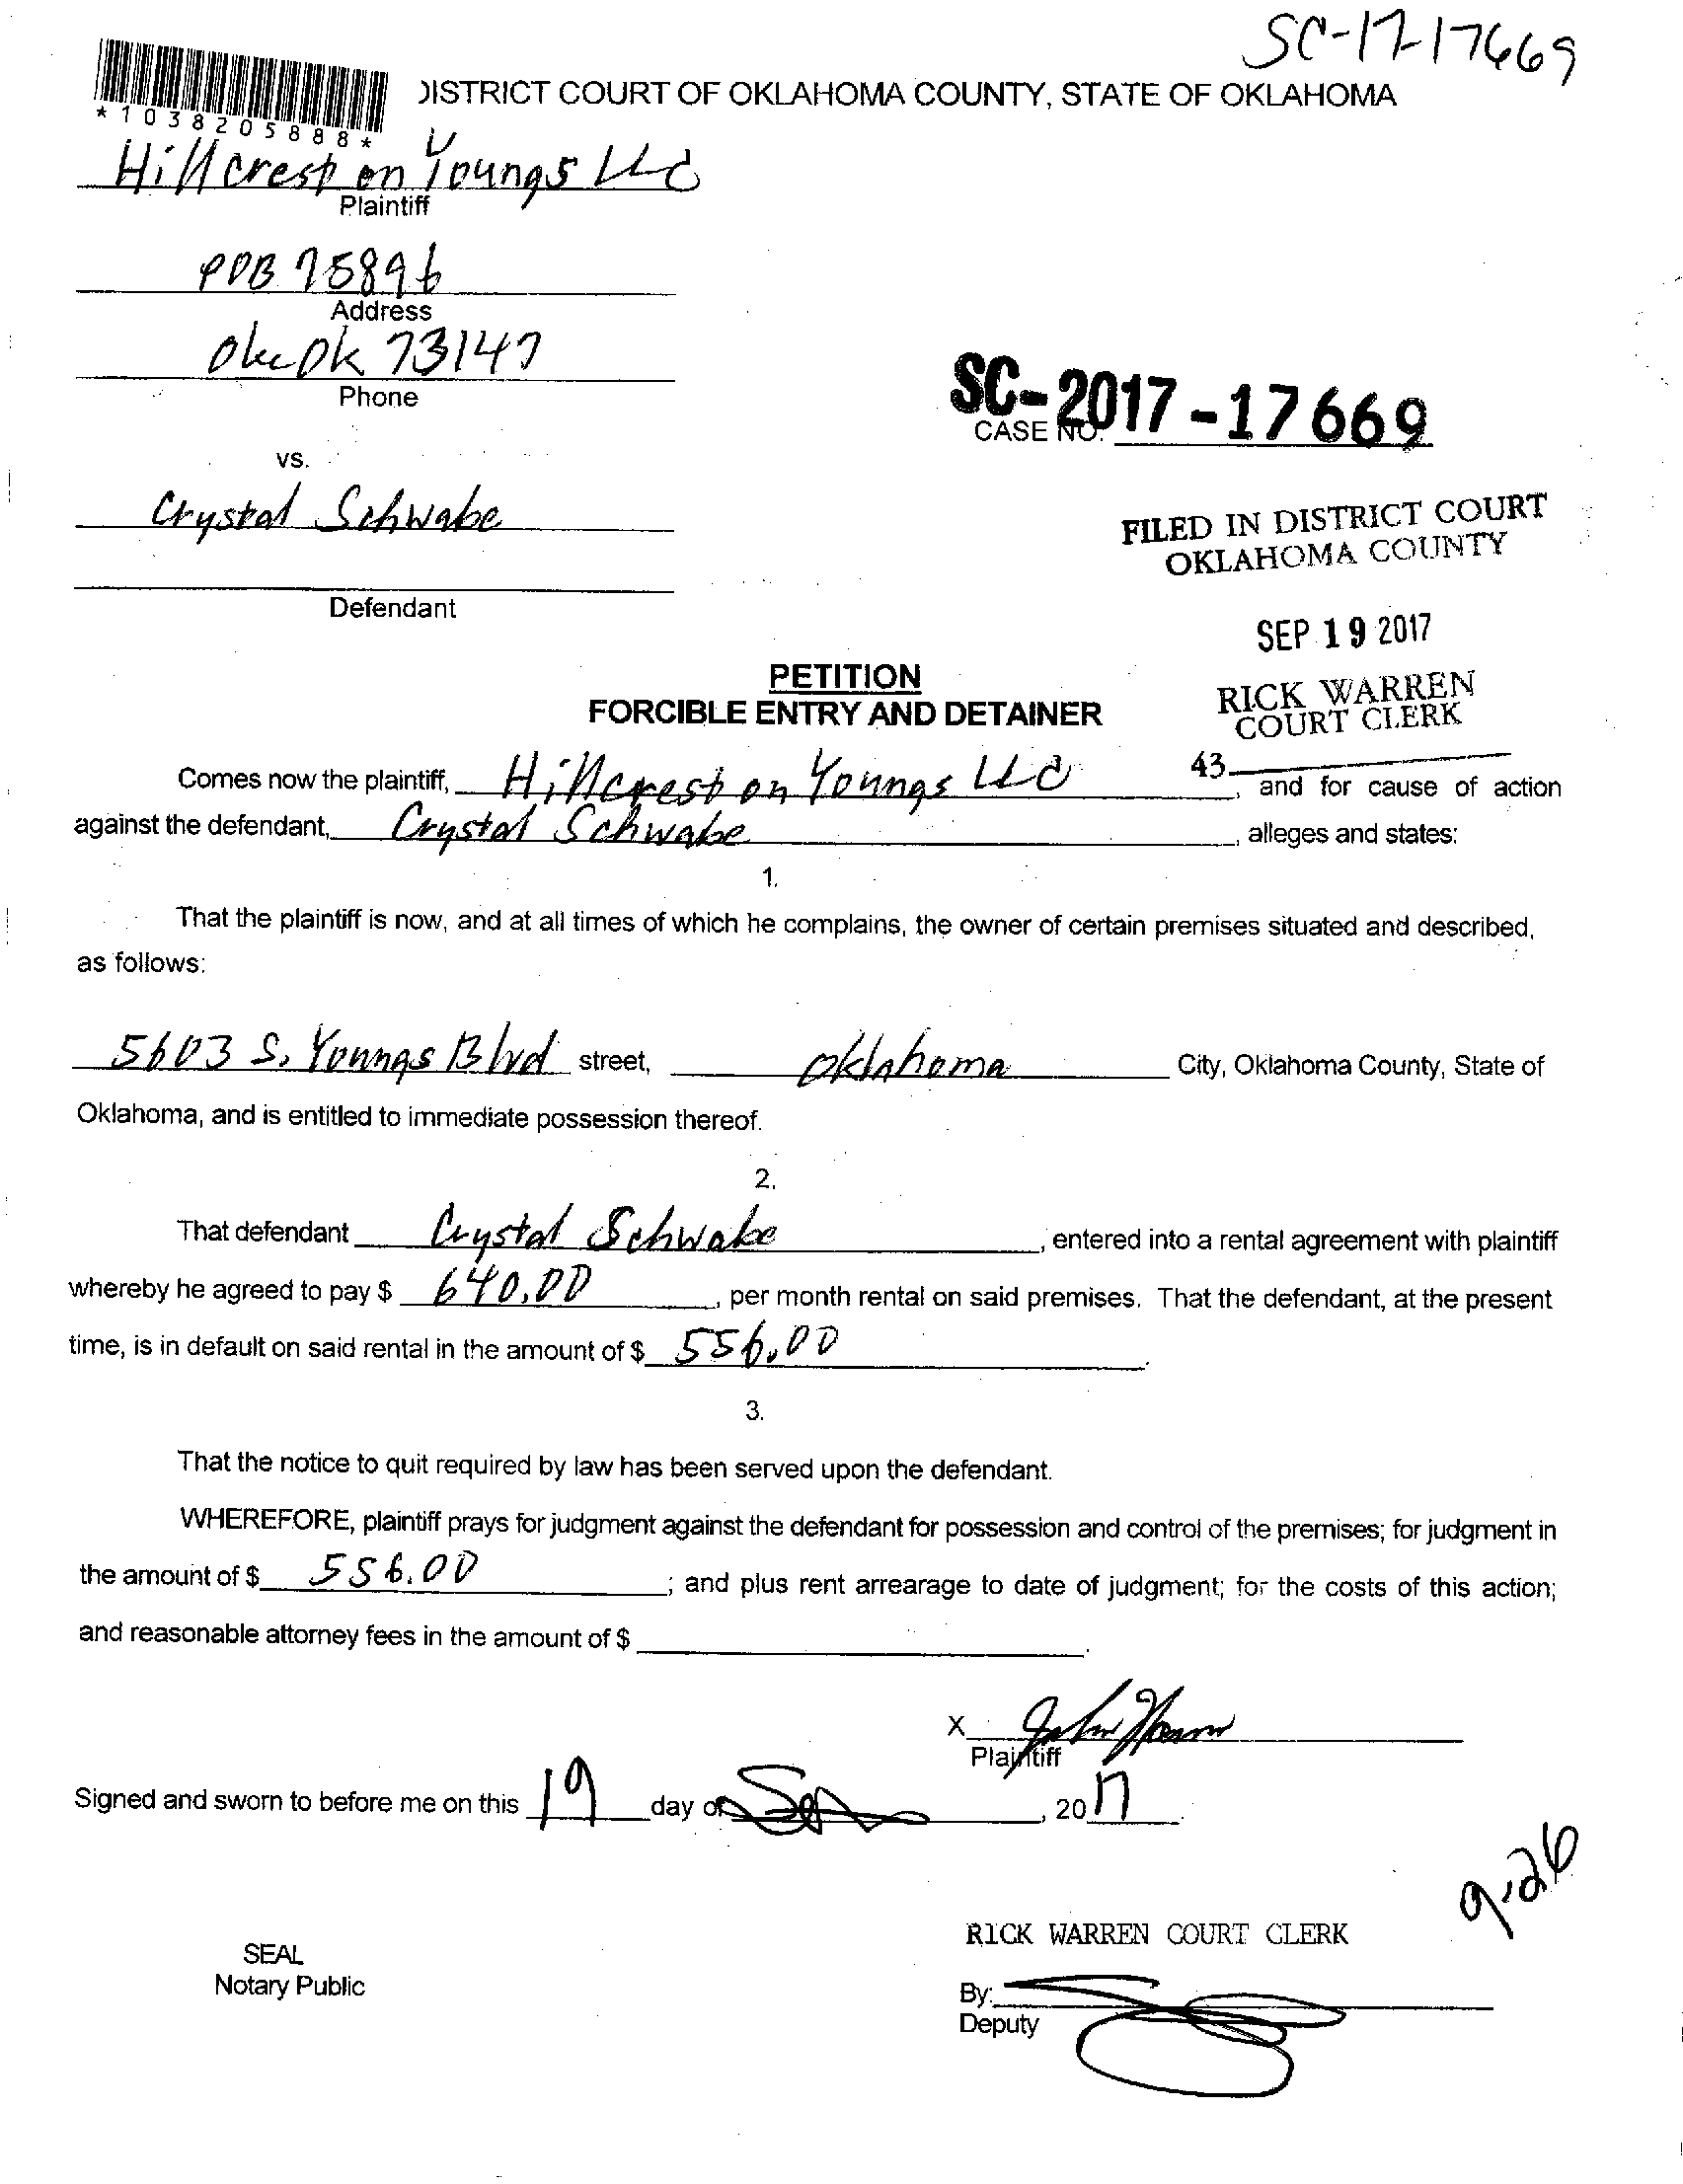 SC-17-17669
DISTRICT COURT OF OKLAHOMA COUNTY, STATE OF OKLAHOMA
*1038205888*
Hillcrest on Youngs LLC
Plaintiff
POB 75896
Address
Okc Ok 73147
Phone
SC-2017-17669
CASE NO.
vs.
Crystal Schwabe
FILED IN DISTRICT COURT
OKLAHOMA COUNTY
Defendant
SEP 19 2017
PETITION
FORCIBLE ENTRY AND DETAINER
RICK WARREN
COURT CLERK
43
Comes now the plaintiff, Hillcrest on Youngs LLC, and for cause of action
against the defendant, Crystal Schwabe, alleges and states:
1.
That the plaintiff is now, and at all times of which he complains, the owner of certain premises situated and described,
as follows:
5603 S. Youngs Blvd street, Oklahoma City, Oklahoma County, State of
Oklahoma, and is entitled to immediate possession thereof.
2.
That defendant Crystal Schwabe, entered into a rental agreement with plaintiff
whereby he agreed to pay $ 640.00, per month rental on said premises. That the defendant, at the present
time, is in default on said rental in the amount of $ 556.00.
3.
That the notice to quit required by law has been served upon the defendant.
WHEREFORE, plaintiff prays for judgment against the defendant for possession and control of the premises; for judgment in
the amount of $ 556.00; and plus rent arrearage to date of judgment; for the costs of this action;
and reasonable attorney fees in the amount of $ .
X John
Plaintiff
Signed and sworn to before me on this 19 day of Sep, 2017
9-26
RICK WARREN COURT CLERK
SEAL
Notary Public
By:
Deputy